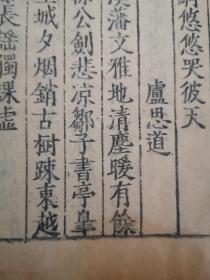 悠悠哭彼天
盧思道
藩文雅地清塵暖有餘
公劍悲涼鄒子書亭皇
城夕烟銷古樹踈東越
長謡獨課虛